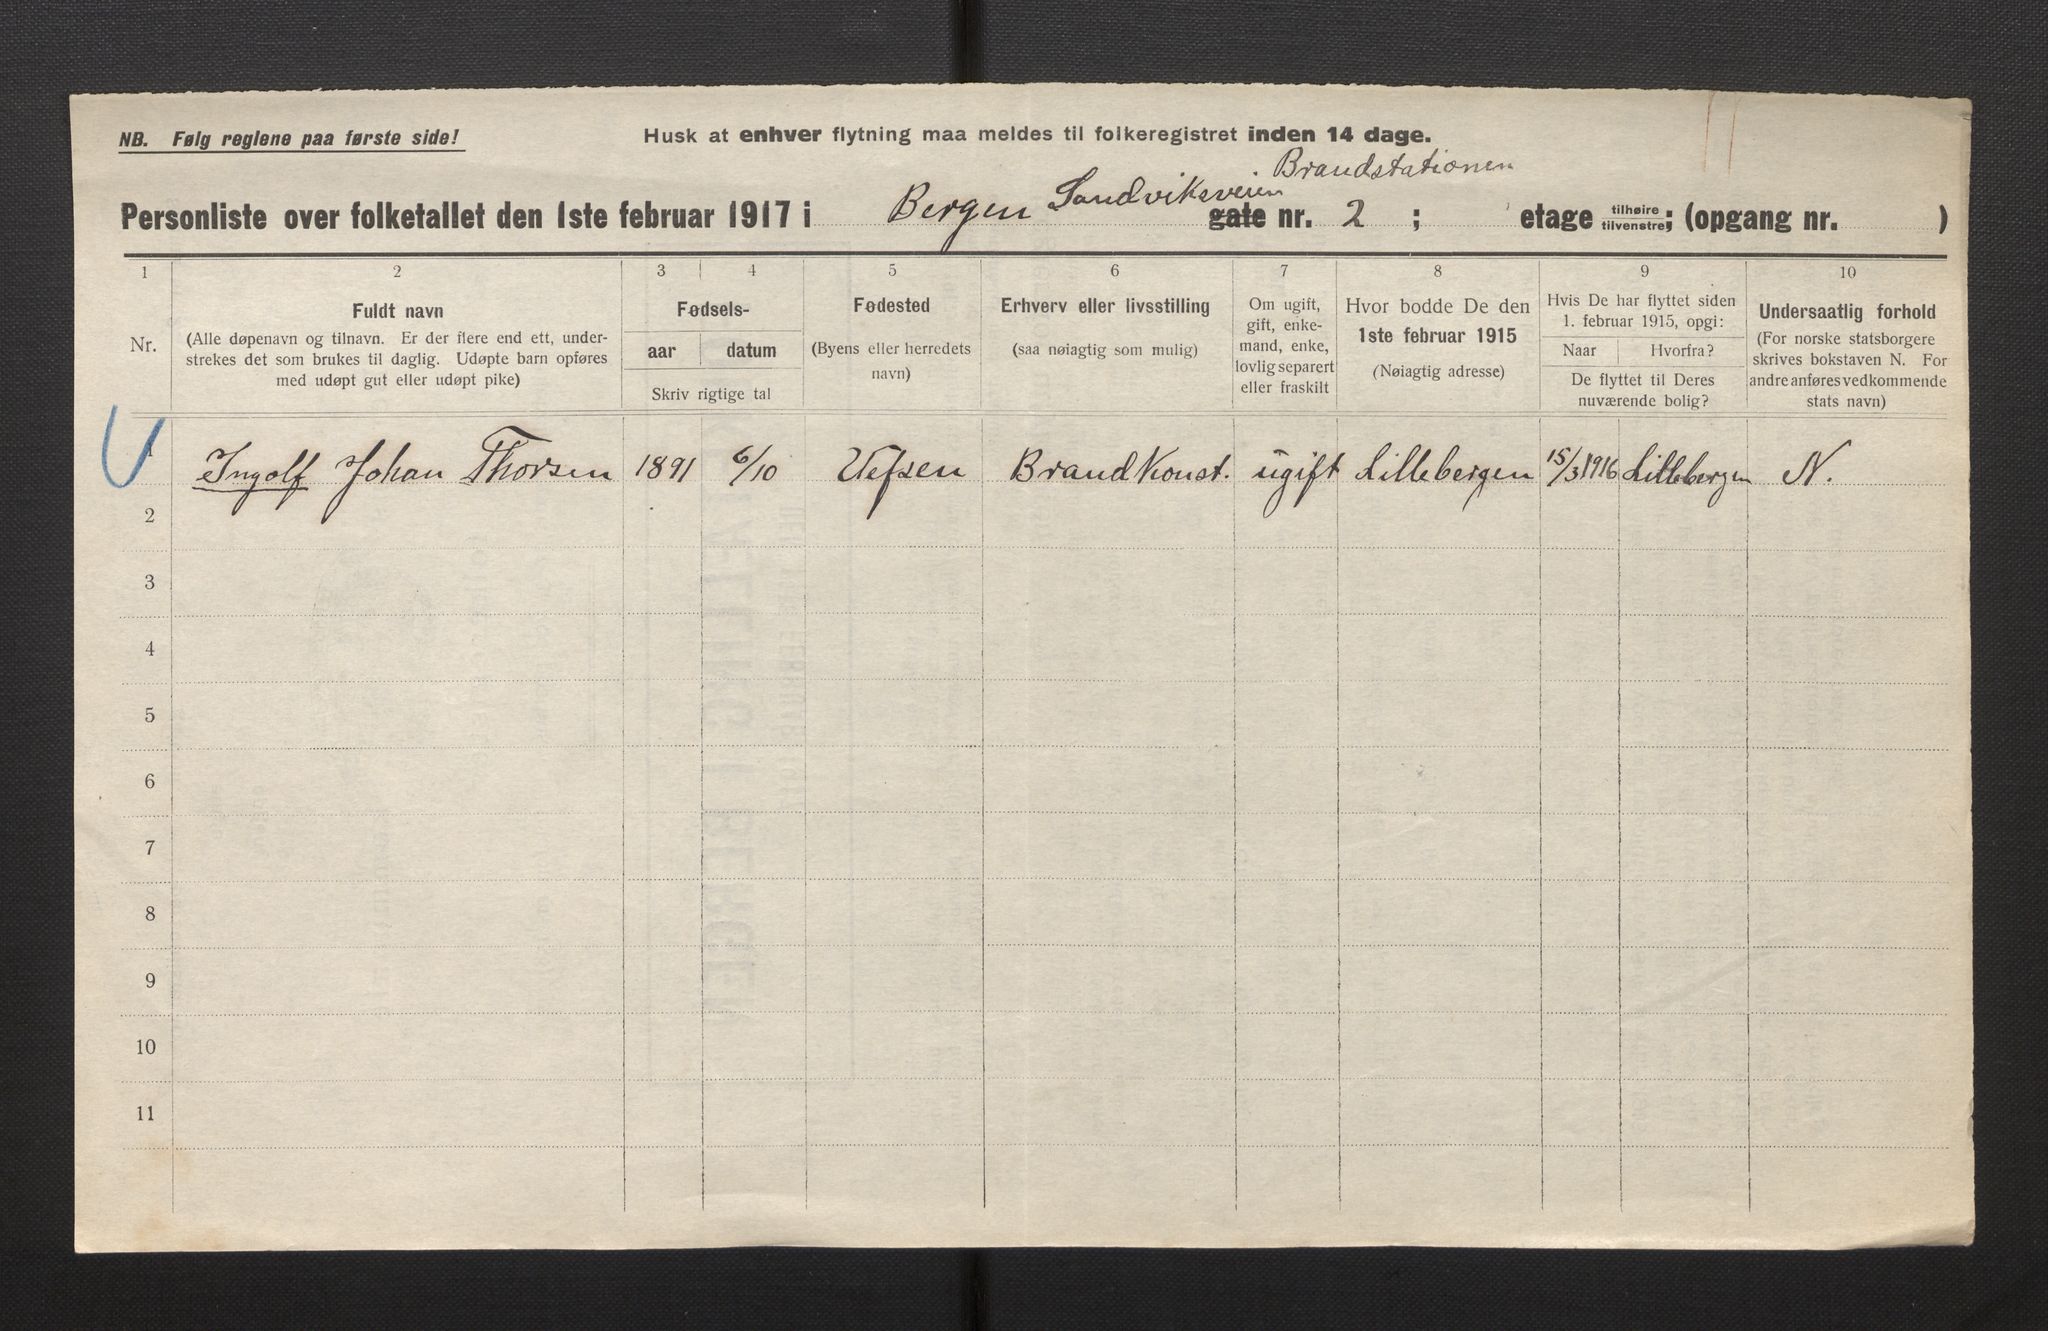 NB. Følg reglene paa første side!
Husk at enhver flytning maa meldes til folkeregistret inden 14 dage.
Brandstationen
Personliste over folketallet den 1ste februar 1917 i Bergen Sandviksveien gate nr. 2 ; etage tilhøire tilvenstre; (opgang nr. )
1 2 3 4 5 6 7 8 9 10
Nr.
Fuldt navn
(Alle døpenavn og tilnavn. Er der flere end ett, under-
strekes det som brukes til daglig. Udøpte barn opføres
med udøpt gut eller udøpt pike)
Fødsels-
aar datum
Skriv rigtige tal
Fødested
(Byens eller herredets
navn)
Erhverv eller livsstilling
(saa nøiagtig som mulig)
Om ugift,
gift, enke-
mand, enke,
lovlig separert
eller fraskilt
Hvor bodde De den
1ste februar 1915
(Nøiagtig adresse)
Hvis De har flyttet siden
1. februar 1915, opgi:
Naar Hvorfra?
De flyttet til Deres
nuværende bolig?
Undersaatlig forhold
(For norske statsborgere
skrives bokstaven N. For
andre anføres vedkommende
stats navn)
1 Ingolf Johan Thorsen 1891 6/10 Vefsen Brandkonst. ugift Lillebergen 15/3 1916 Lillebergen N.
2
3
4
5
6
7
8
9
10
11